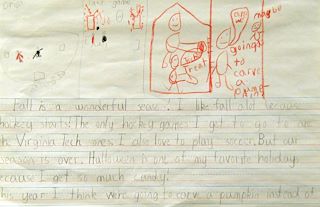 last game
are
maybe
going
to
carve
a
treat
Fall is a wonderful seasc. I like fall alot because
hockey starts! The only hockey games I get to go to are
the Virginia Tech ones. I also love to play soccer. But our
season is over. Halloween is one of my favorite holiday
ecause I get so much candy!
his year I think were going to carve a pumpkin instead of